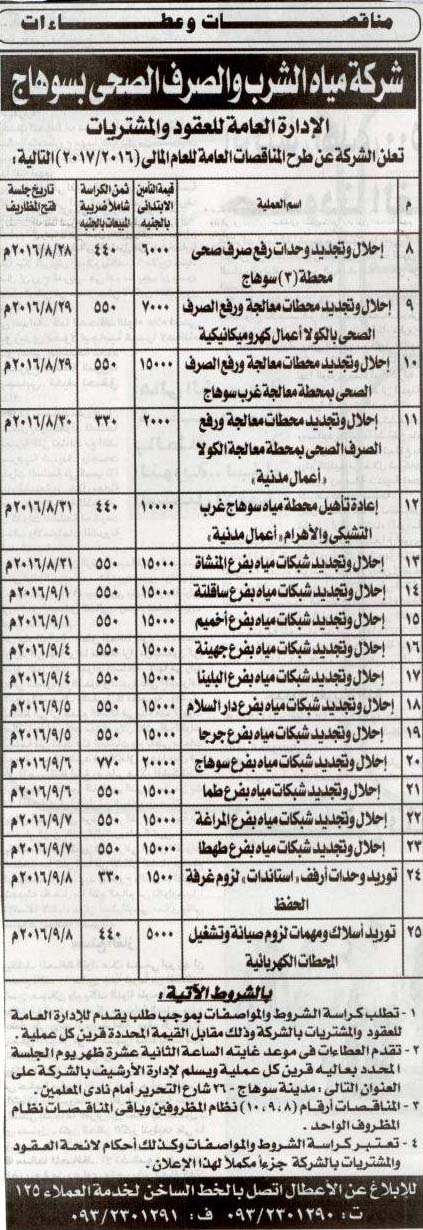 مناقصات وعطاءات
شركة مياه الشرب والصرف الصحى بسوهاج
الإدارة العامة للعقود والمشتريات
تعلن الشركة عن طرح المناقصات العامة للعام المالى (٢٠١٧/٢٠١٦) التالية:
م اسم العملية قيمة التأمين الابتدائى بالجنيه ثمن الكراسة شاملا ضريبة المبيعات بالجنيه تاريخ جلسة فتح المظاريف
٨ إحلال وتجديد وحدات رفع صرف صحى ٦٠٠٠ ٤٤٠ ٢٠١٦/٨/٢٨م
محطة (٣) سوهاج
٩ إحلال وتجديد محطات معالجة ورفع الصرف ٧٠٠٠ ٥٥٠ ٢٠١٦/٨/٢٩م
الصحى بالكولا أعمال كهروميكانيكية
١٠ إحلال وتجديد محطات معالجة ورفع الصرف ١٥٠٠٠ ٥٥٠ ٢٠١٦/٨/٢٩م
الصحى بمحطة معالجة غرب سوهاج
١١ إحلال وتجديد محطات معالجة ورفع ٢٠٠٠ ٣٣٠ ٢٠١٦/٨/٣٠م
الصرف الصحى بمحطة معالجة الكولا
«أعمال مدنية»
١٢ إعادة تأهيل محطة مياه سوهاج غرب ١٠٠٠٠ ٤٤٠ ٢٠١٦/٨/٣١م
التشيكى والأهرام «أعمال مدنية»
١٣ إحلال وتجديد شبكات مياه بفرع المنشاة ١٥٠٠٠ ٥٥٠ ٢٠١٦/٨/٣١م
١٤ إحلال وتجديد شبكات مياه بفرع ساقلتة ١٥٠٠٠ ٥٥٠ ٢٠١٦/٩/١م
١٥ إحلال وتجديد شبكات مياه بفرع أخميم ١٥٠٠٠ ٥٥٠ ٢٠١٦/٩/١م
١٦ إحلال وتجديد شبكات مياه بفرع جهينة ١٥٠٠٠ ٥٥٠ ٢٠١٦/٩/٤م
١٧ إحلال وتجديد شبكات مياه بفرع البلينا ١٥٠٠٠ ٥٥٠ ٢٠١٦/٩/٤م
١٨ إحلال وتجديد شبكات مياه بفرع دار السلام ١٥٠٠٠ ٥٥٠ ٢٠١٦/٩/٥م
١٩ إحلال وتجديد شبكات مياه بفرع جرجا ١٥٠٠٠ ٥٥٠ ٢٠١٦/٩/٥م
٢٠ إحلال وتجديد شبكات مياه بفرع سوهاج ٢٠٠٠٠ ٧٧٠ ٢٠١٦/٩/٦م
٢١ إحلال وتجديد شبكات مياه بفرع طما ١٥٠٠٠ ٥٥٠ ٢٠١٦/٩/٦م
٢٢ إحلال وتجديد شبكات مياه بفرع المراغة ١٥٠٠٠ ٥٥٠ ٢٠١٦/٩/٧م
٢٣ إحلال وتجديد شبكات مياه بفرع طهطا ١٥٠٠٠ ٥٥٠ ٢٠١٦/٩/٧م
٢٤ توريد وحدات أرفف «استاندات» لزوم غرفة ١٥٠٠ ٣٣٠ ٢٠١٦/٩/٨م
الحفظ
٢٥ توريد أسلاك ومهمات لزوم صيانة وتشغيل ٥٠٠٠ ٤٤٠ ٢٠١٦/٩/٨م
المحطات الكهربائية
بالشروط الآتية:
١- تطلب كراسة الشروط والمواصفات بموجب طلب يقدم للإدارة العامة
للعقود والمشتريات بالشركة وذلك مقابل القيمة المحددة قرين كل عملية.
٢- تقدم العطاءات فى موعد غايته الساعة الثانية عشرة ظهر يوم الجلسة
المحدد بعاليه قرين كل عملية ويسلم لإدارة الأرشيف بالشركة على
العنوان التالى: مدينة سوهاج - ٢٦ شارع التحرير أمام نادى المعلمين.
٣- المناقصات أرقام (١٠،٩،٨) نظام المظروفين وباقى المناقصات نظام
المظروف الواحد.
٤- تعتبر كراسة الشروط والمواصفات وكذلك أحكام لائحة العقود
والمشتريات بالشركة جزءاً مكملاً لهذا الإعلان.
للإبلاغ عن الأعطال اتصل بالخط الساخن لخدمة العملاء ١٢٥
ت: ٠٩٣/٢٣٠١٢٩٠ ف: ٠٩٣/٢٣٠١٢٩١